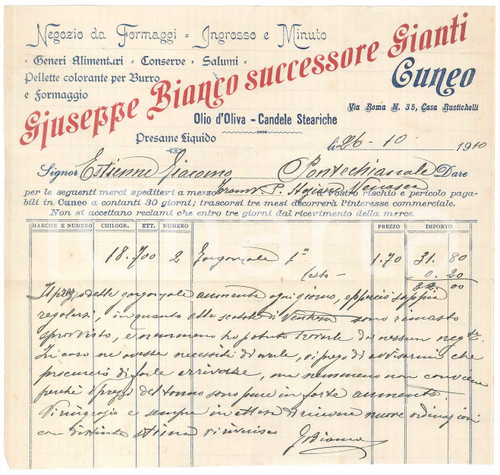 Negozio da Formaggi - Ingrosso e Minuto
Generi Alimentari - Conserve - Salumi
Pellette colorante per Burro
e Formaggio
Giuseppe Bianco successore Gianti
Cuneo
Via Roma N. 35, Casa Bustichelli
Olio d'Oliva - Candele Steariche
Presame Liquido
li 26-10- 1910
Signor Estienne Giacomo Pontechianale Dare
per le seguenti merci speditevi a mezzo a vostro rischio e pericolo paga-
bili in Cuneo a contanti 30 giorni; trascorsi tre mesi decorrerà l'interesse commerciale.
Non si accettano reclami che entro tre giorni dal ricevimento della merce.
MARCHE E NUMERO CHILOGR. ETT. NUMERO PREZZO IMPORTO
18.700 2 Gorgonzola 1ª 1.70 31.80
Cesto 0.20
32.00
Il prezzo delle gorgonzole aumenta ogni giorno, sappia
regolarsi, in quanto alle scatole di sono rimasto
sprovvisto, e nemmeno ho potuto trovarle da nessun neg.te
In caso ne avesse necessità di averle, si prego di avvisarmi che
procurerò di farle arrivare, ma nemmeno non conviene
perchè i prezzi del tonno sono pure in forte aumento
Vi ringrazio e sempre in attesa di ricevere nuove ordinazioni
con distinta stima vi riverisco
G Bianco